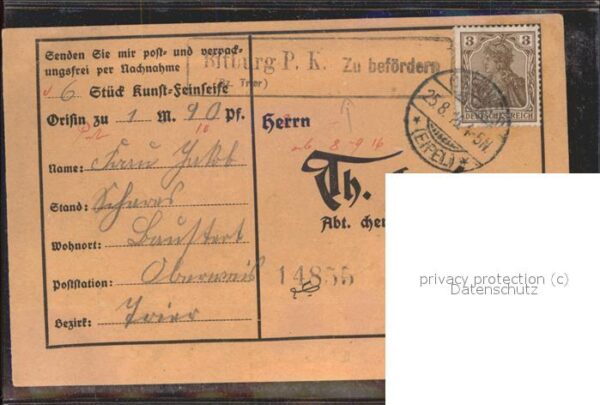 Senden Sie mir post- und verpack-
ungsfrei per Nachnahme
6 Stück Kunst-Feinseife
Orisin zu 1 M. 90 Pf.
Name: Frau Jakob
Stand: Scheres
Wohnort: Baustert
Poststation: Oberweis
Bezirk: Trier
Bitburg P. K. Zu befördern
(Bz. Trier)
3 3
DEUTSCHES REICH
25.8.
4-5N
* (EIFEL) *
Herrn
8-9 16
Th.
Abt. che
14855
privacy protection (c)
Datenschutz